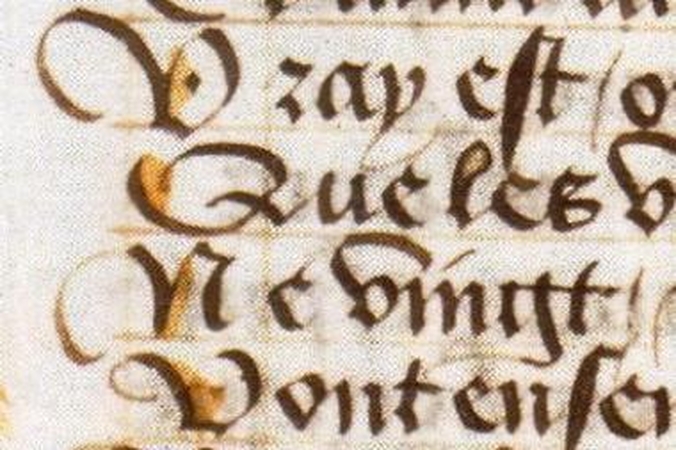 Vray est / o
Que les v
Ne vingt /
Vont ense